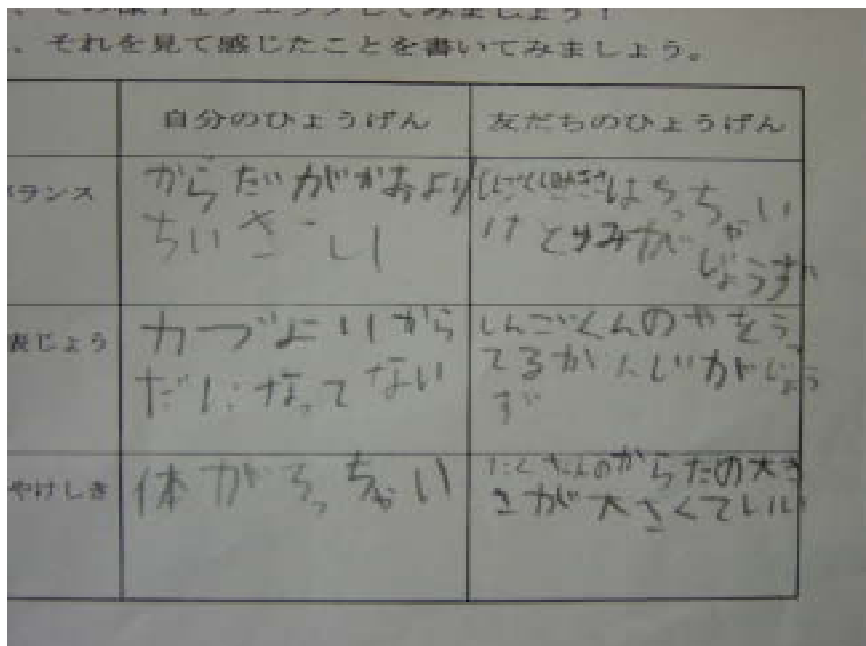 、それを見て感じたことを書いてみましょう。
自分のひょうげん
友だちのひょうげん
バランス
からだいがかおより
ちいさい
はちっちゃい
けどゆみが
じょうず
表じょう
よりから
だになってない
しんごくんのやをう
てるかんじがじょう
ず
やけしき
体がちっちゃい
からだの大き
さが大きくていい